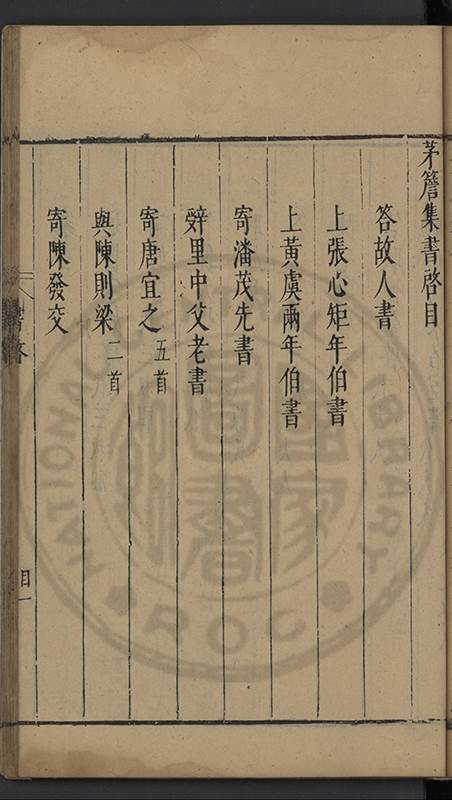 茅簷集書啓目
答故人書
上張心矩年伯書
上黃虞兩年伯書
寄潘茂先書
辤里中父老書
寄唐宜之五首
與陳則梁二首
寄陳發交
書啓
目一